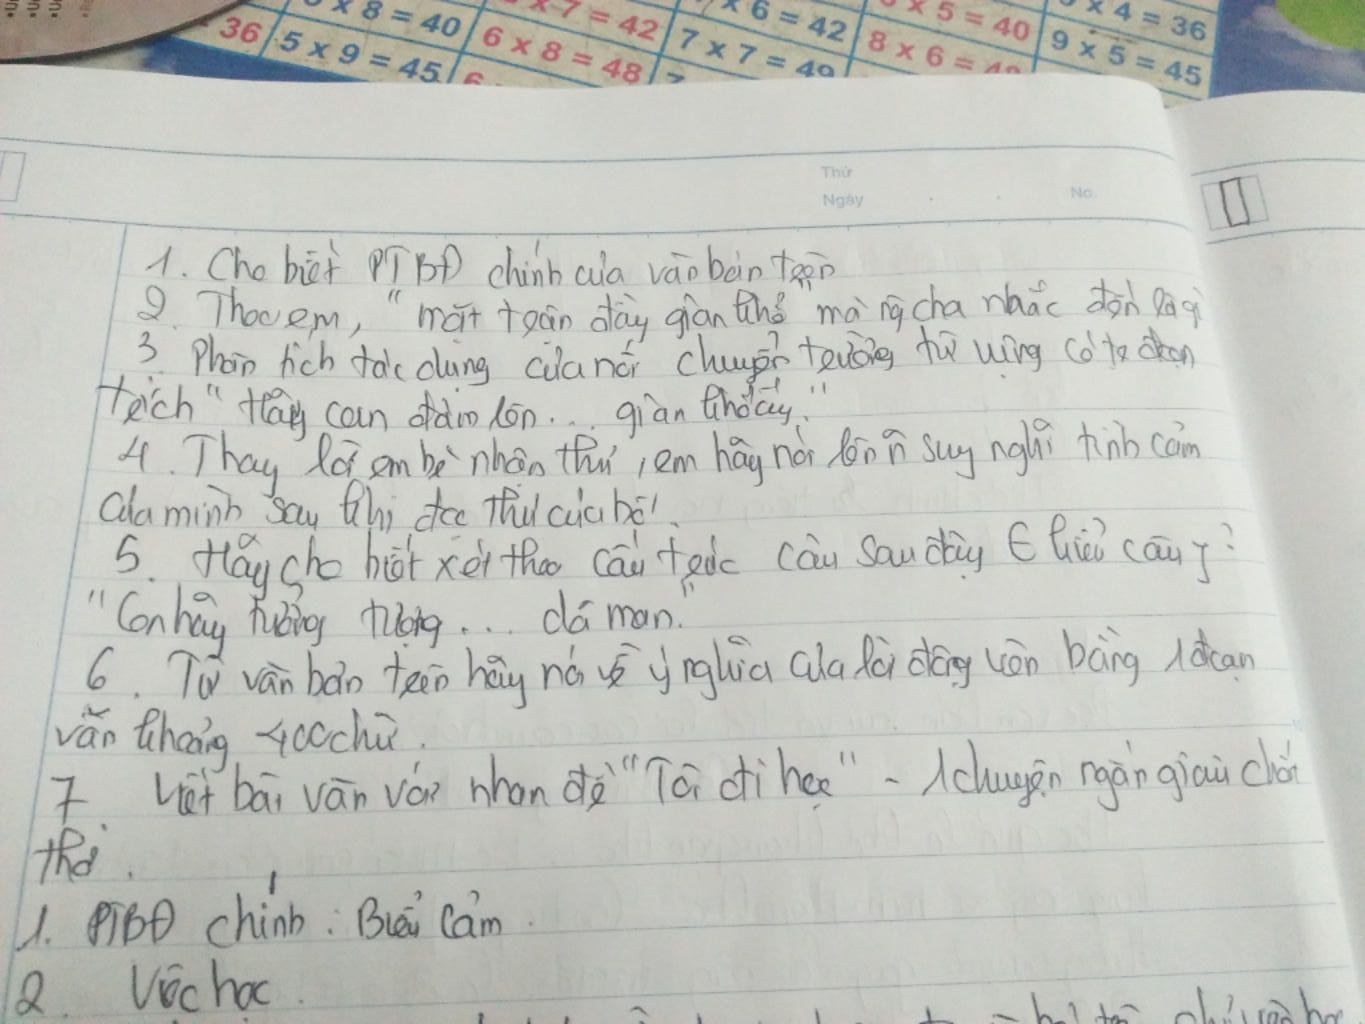 x 8 = 40
x 7 = 42
x 6 = 42
x 5 = 40
x 4 = 36
36
5 x 9 = 45
6 x 8 = 48
7 x 7 = 49
8 x 6 =
9 x 5 = 45
Thứ
Ngày
No.
1. Cho biết PTBĐ chính của văn bản trên
2. Theo em, "mặt trận đầy gian khổ" mà ng cha nhắc đến là gì
3. Phân tích tác dụng của nói chuyển trường từ vựng có từ đoạn
trích "Hãy can đảm lên... gian khổ ấy."
4. Thay lời em bé nhận thư, em hãy nói lên ~ suy nghĩ tình cảm
của mình sau khi đọc thư của bố.
5. Hãy cho biết xét theo cấu trúc câu sau đây € kiểu câu j?
"Con hãy tưởng tượng... dã man."
6. Từ văn bản trên hãy nói về ý nghĩa của lời động viên bằng 1 đoạn
văn khoảng 400 chữ.
7 Viết bài văn với nhan đề "Tôi đi học" - 1 chuyện ngắn giàu chất
thơ.
1. PTBĐ chính: Biểu cảm.
2. Việc học.